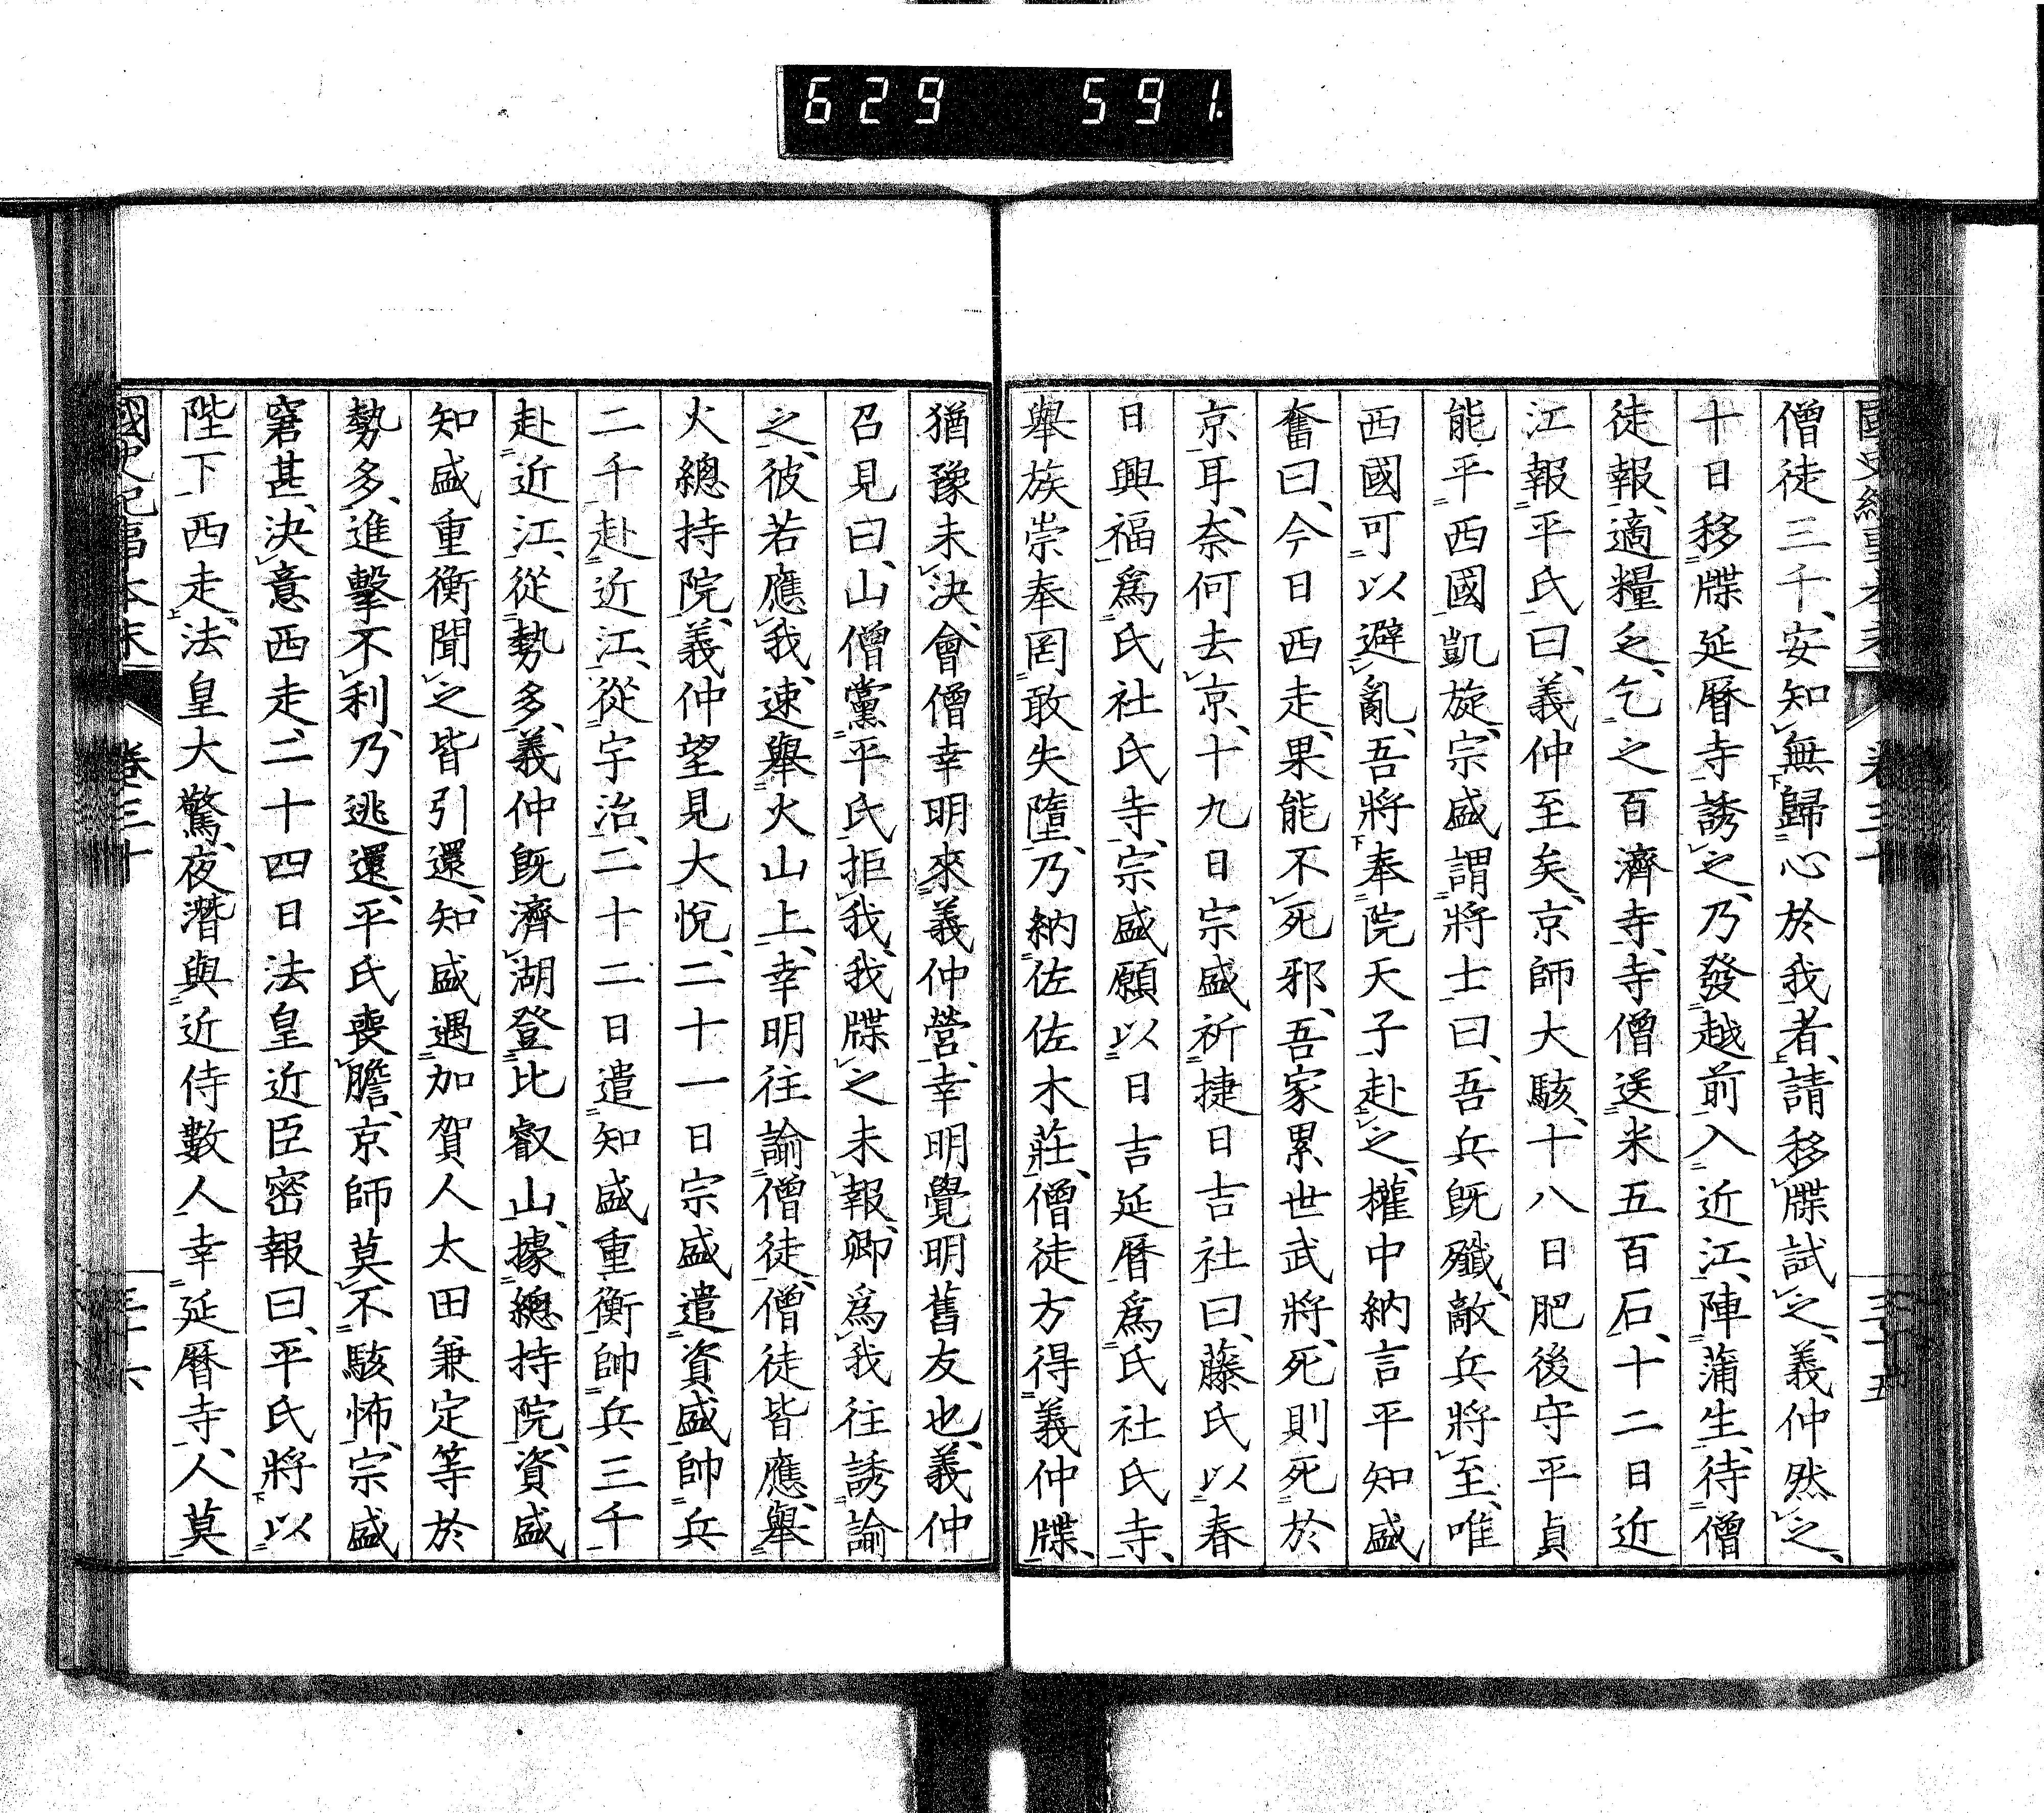 629 591.
國史紀事本末 卷三十 三十五
僧徒三千、安知無歸心於我者、請移牒試之、義仲然之、
十日移牒延曆寺誘之、乃發越前入近江、陣蒲生、待僧
徒報、適糧乏、乞之百濟寺、寺僧送米五百石、十二日近
江報平氏曰、義仲至矣、京師大駭、十八日肥後守平貞
能平西國凱旋、宗盛謂將士曰、吾兵旣殲、敵兵將至、唯
西國可以避亂、吾將奉院天子赴之、權中納言平知盛
奮曰、今日西走、果能不死邪、吾家累世武將、死則死於
京耳、奈何去京、十九日宗盛祈捷日吉社曰、藤氏以春
日興福爲氏社氏寺、宗盛願以日吉延曆爲氏社氏寺、
舉族崇奉罔敢失墮、乃納佐佐木莊、僧徒方得義仲牒、
猶豫未決、會僧幸明來義仲營、幸明覺明舊友也、義仲
召見曰、山僧黨平氏拒我、我牒之未報、卿爲我往誘諭
之、彼若應我、速舉火山上、幸明往諭僧徒、僧徒皆應、舉
火總持院、義仲望見大悅、二十一日宗盛遣資盛帥兵
二千赴近江、從宇治、二十二日遣知盛重衡帥兵三千
赴近江、從勢多、義仲旣濟湖登比叡山、據總持院、資盛
知盛重衡聞之皆引還、知盛遇加賀人太田兼定等於
勢多、進擊不利、乃逃還、平氏喪膽、京師莫不駭怖、宗盛
窘甚、決意西走、二十四日法皇近臣密報曰、平氏將以
陛下西走、法皇大驚、夜潛與近侍數人幸延曆寺、人莫
國史紀事本末 卷三十 三十六